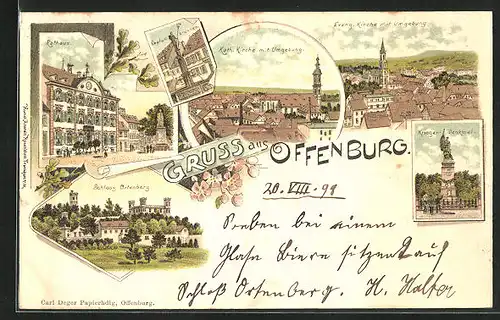 Rathaus.
Kath. Kirche mit Umgebung.
Evang. Kirche mit Umgebung.
GRUSS aus OFFENBURG.
Krieger-Denkmal
Schloss Ortenberg.
20. VIII. 98
Soeben bei einem
Glase Biere sitzend auf
Schloß Ortenberg. H. Halter
Carl Deger Papierhdlg, Offenburg.